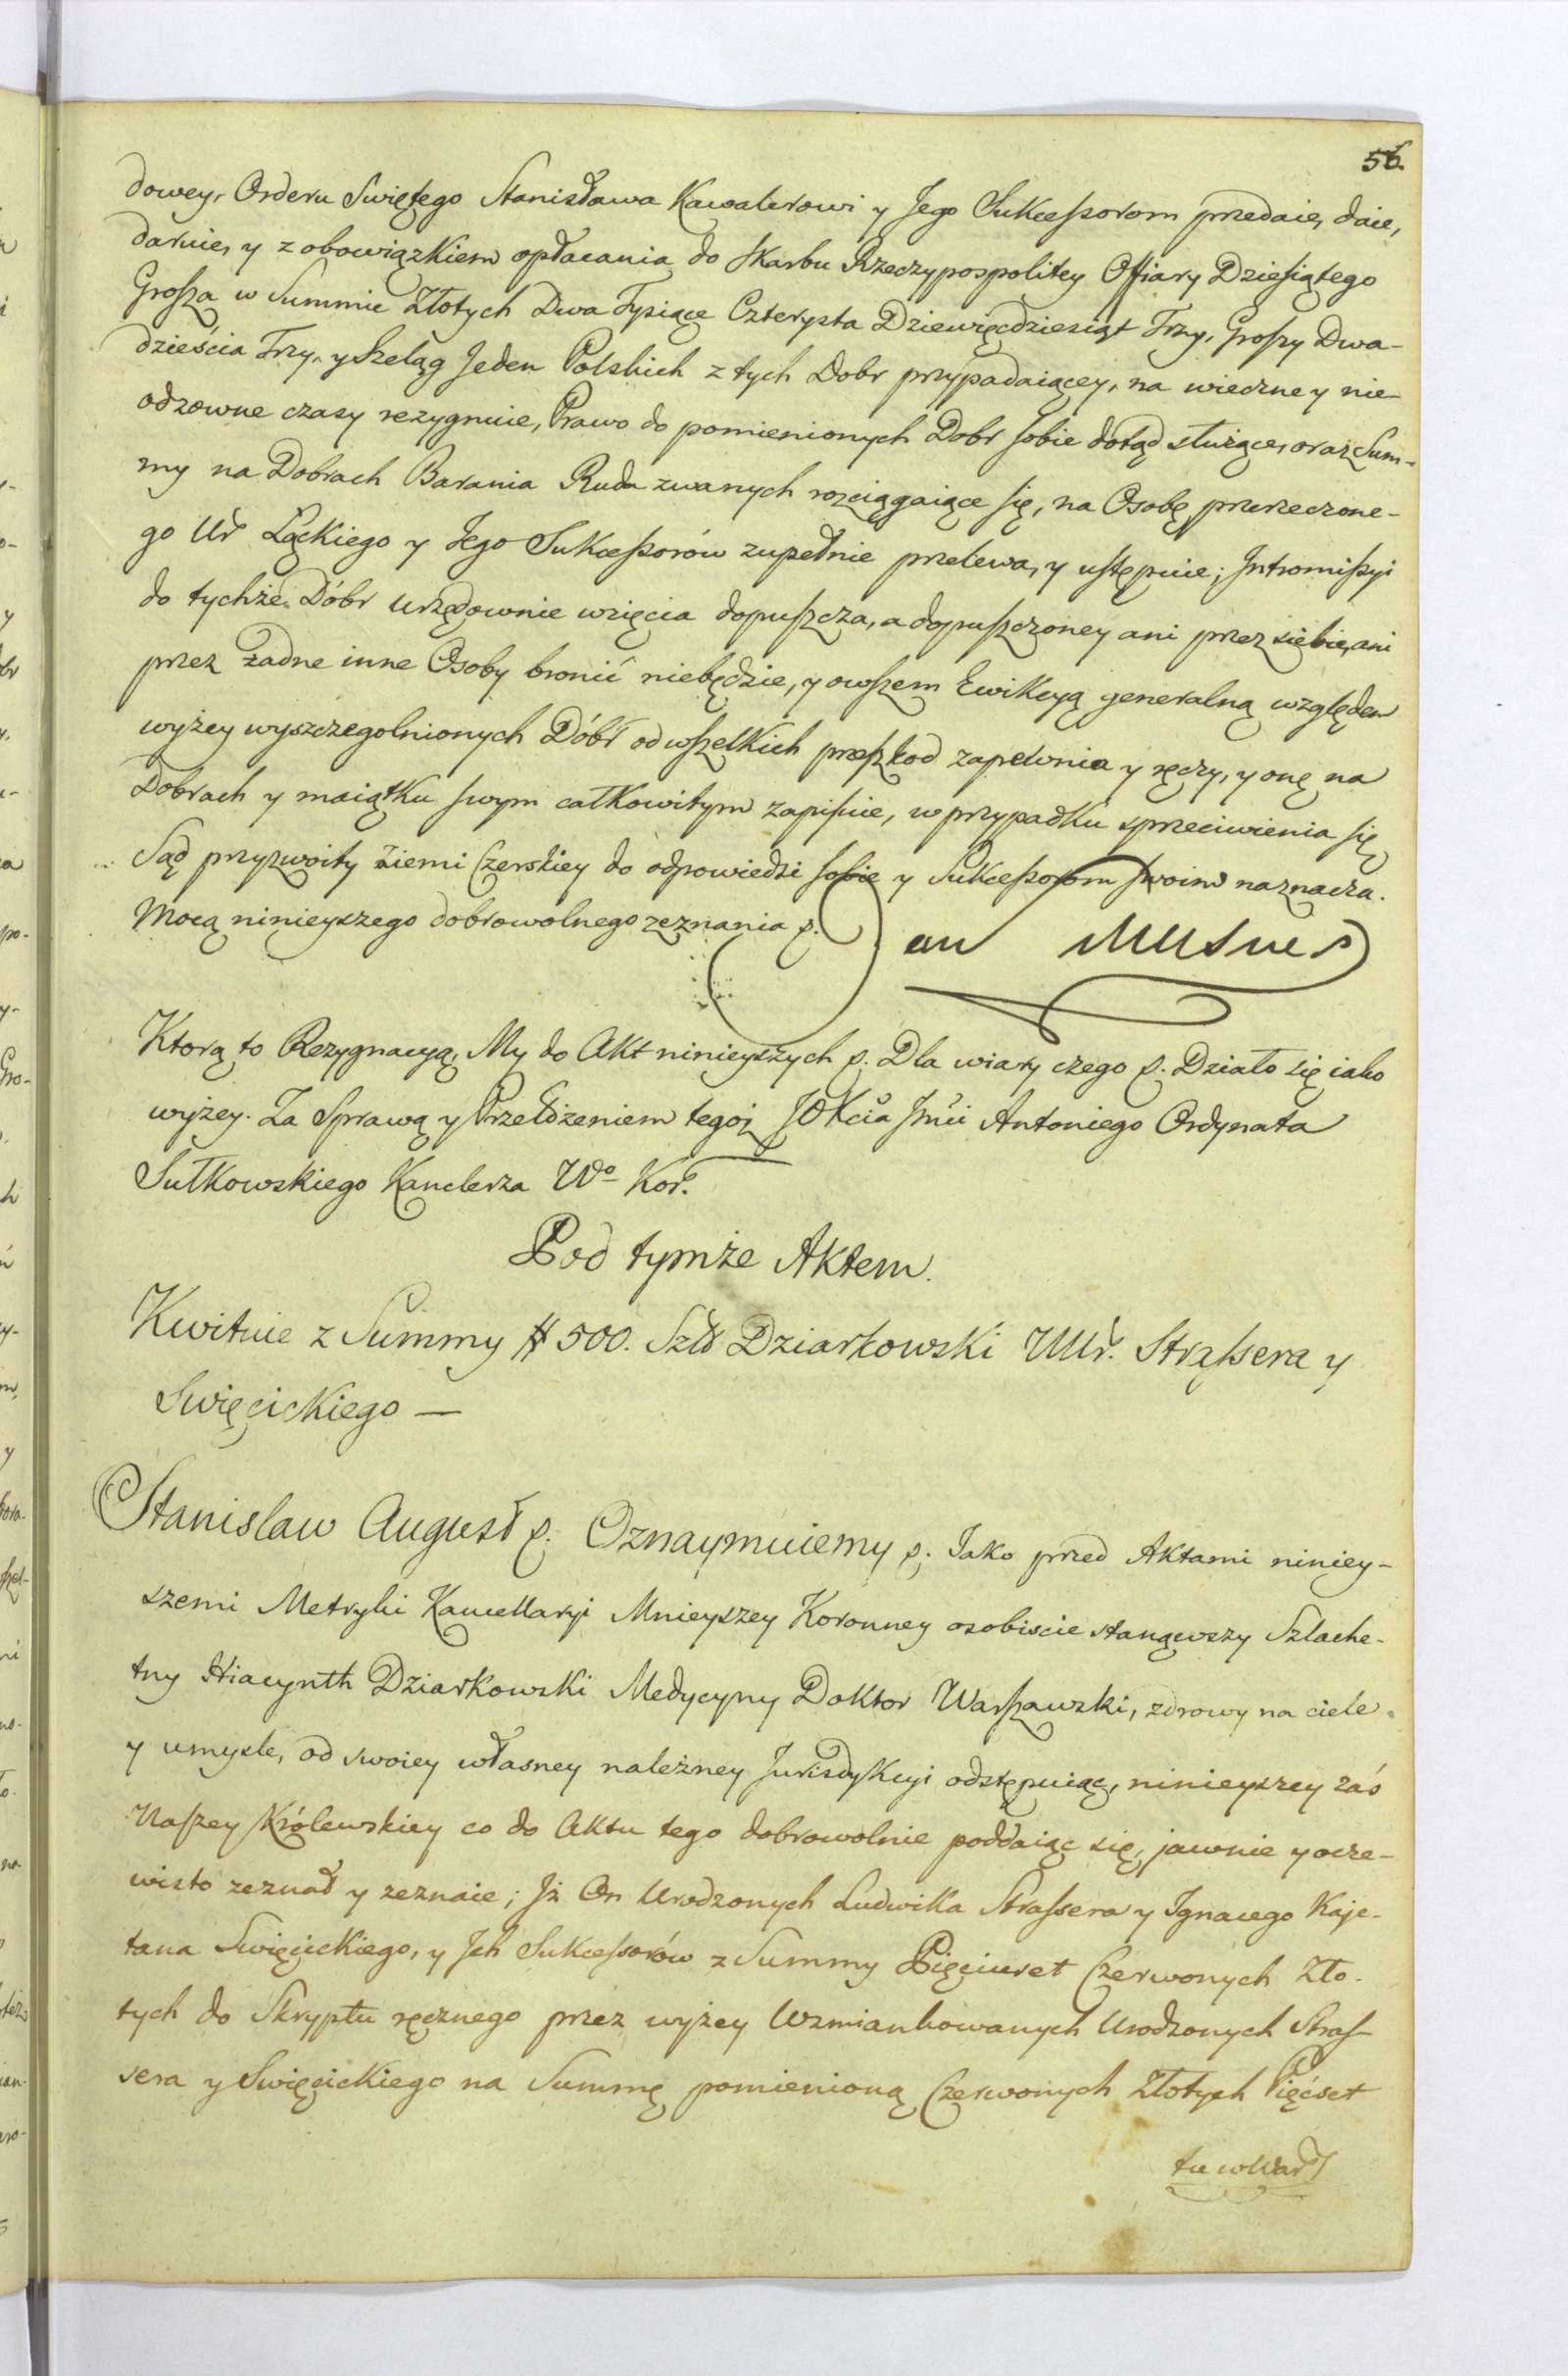 56.
dowey, Orderu Swiętego Stanisława Kawalerowi y Jego Sukceßorom przedaie, daie,
daruie, y z obowiązkiem opłacania do Skarbu Rzeczypospolitey Offiary Dziesiątego
Grosza w Summie Złotych Dwa Tysiące Czterysta Dziewięcdziesiąt Trzy, Groszy Dwa-
dzieścia Trzy, y Szeląg Jeden Polskich z tych Dobr przypadaiącey, na wieczne y nie-
odzowne czasy rezygnuie, Prawo do pomienionych Dobr sobie dotąd służące, oraz Sum-
my na Dobrach Barania Ruda zwanych rozciągaiące się, na Osobę przerzeczone-
go Ur Łąckiego y Jego Sukceßorów zupełnie przelewa, y ustępuie; Intromißyi
do tychże Dóbr urzędownie wzięcia dopuszcza, a dopuszczoney ani przez siebie, ani
przez żadne inne Osoby bronić niebędzie, y owszem Ewikcyą generalną względem
wyżey wyszczegolnionych Dóbr od wszelkich przeszkod zapewnia y ręczy, y onę na
Dobrach y maiątku swym całkowitym zapisuie, w przypadku sprzeciwienia się
Sąd przyzwoity Ziemi Czerskiey do odpowiedzi sobie y Sukceßorom swoim naznacza.
Mocą ninieyszego dobrowolnego zeznania p.
Jan
Ktorą to Rezygnacyą, My do Akt ninieyszych p. Dla wiary czego p. Działo się iako
wyżey. Za Sprawą y Przełożeniem tegoż JOKcia Jmći Antoniego Ordynata
Sułkowskiego Kanclerza Wo Kor.
Pod tymże Aktem.
Kwituie z Summy # 500. Szld Dziarkowski UUr. Straßera y
Swięcickiego —
Stanislaw August p. Oznaymuiemy p. Jako przed Aktami niniey-
szemi Metryki Kancellaryi Mnieyszey Koronney osobiscie stanąwszy Szlache-
tny Hiacynth Dziarkowski Medycyny Doktor Warszawski, zdrowy na ciele
y umysle, od swoiey własney należney Jurisdykcyi odstępuiąc, ninieyszey zaś
Naszey Królewskiey co do Aktu tego dobrowolnie poddaiąc się, jawnie y ocze-
wisto zeznał y zeznaie; Jż On Urodzonych Ludwika Straßera y Ignacego Kaje-
tana Swięcickiego, y Jch Sukceßorów z Summy Pięciuset Czerwonych Zło-
tych do Skryptu ręcznego przez wyżey Wzmiankowanych Urodzonych Stras-
sera y Swięcickiego na Summę pomienioną Czerwonych Złotych Pięćset
tu w Warß